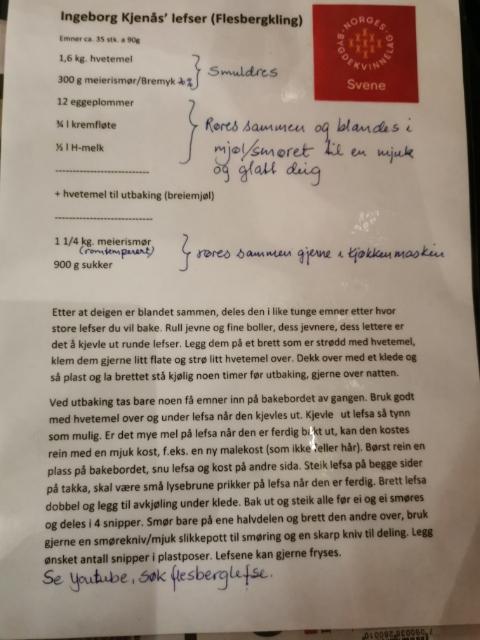 Ingeborg Kjenås' lefser (Flesbergkling)
NORGES BYGDEKVINNELAG
Svene
Emner ca. 35 stk. a 90g
1,6 kg. hvetemel
300 g meierismør/Bremyk
Smuldres
12 eggeplommer
¾ l kremfløte
½ l H-melk
Røres sammen og blandes i
mjøl/smøret til en mjuk
og glatt deig
----------------------------
+ hvetemel til utbaking (breiemjøl)
----------------------------
1 1/4 kg. meierismør
(romtemperert)
900 g sukker
røres sammen gjerne i kjøkkenmaskin
Etter at deigen er blandet sammen, deles den i like tunge emner etter hvor
store lefser du vil bake. Rull jevne og fine boller, dess jevnere, dess lettere er
det å kjevle ut runde lefser. Legg dem på et brett som er strødd med hvetemel,
klem dem gjerne litt flate og strø litt hvetemel over. Dekk over med et klede og
så plast og la brettet stå kjølig noen timer før utbaking, gjerne over natten.
Ved utbaking tas bare noen få emner inn på bakebordet av gangen. Bruk godt
med hvetemel over og under lefsa når den kjevles ut. Kjevle ut lefsa så tynn
som mulig. Er det mye mel på lefsa når den er ferdig bakt ut, kan den kostes
rein med en mjuk kost, f.eks. en ny malekost (som ikke feller hår). Børst rein en
plass på bakebordet, snu lefsa og kost på andre sida. Steik lefsa på begge sider
på takka, skal være små lysebrune prikker på lefsa når den er ferdig. Brett lefsa
dobbel og legg til avkjøling under klede. Bak ut og steik alle før ei og ei smøres
og deles i 4 snipper. Smør bare på ene halvdelen og brett den andre over, bruk
gjerne en smørekniv/mjuk slikkepott til smøring og en skarp kniv til deling. Legg
ønsket antall snipper i plastposer. Lefsene kan gjerne fryses.
Se Youtube, søk flesberglefse.